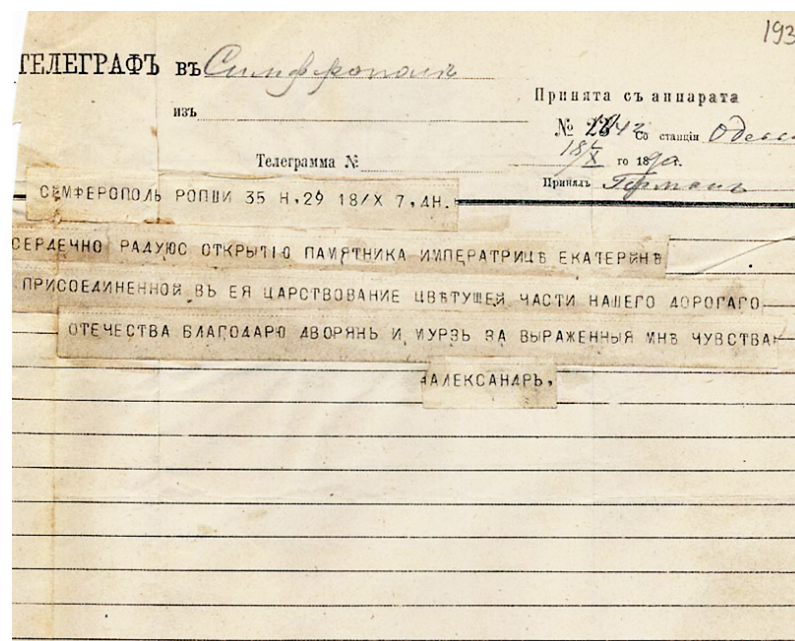 193
ТЕЛЕГРАФЪ въ Симферополь
изъ
Принята съ аппарата
№ 2842 со станціи Одесс
Телеграмма №
18/X го 1890 г.
Принялъ Германъ
СИМФЕРОПОЛЬ РОПШИ 35 Н,29 18/X 7,ДН.
СЕРДЕЧНО РАДУЮС ОТКРЫТІЮ ПАМЯТНИКА ИМПЕРАТРИЦѢ ЕКАТЕРИНѢ
ПРИСОЕДИНЕННОЙ ВЪ ЕЯ ЦАРСТВОВАНИЕ ЦВѢТУЩЕЙ ЧАСТИ НАШЕГО ДОРОГАГО
ОТЕЧЕСТВА БЛАГОДАРЮ ДВОРЯНЬ И МУРЗЬ ЗА ВЫРАЖЕННЫЯ МНѢ ЧУВСТВА
АЛЕКСАНДРЬ,